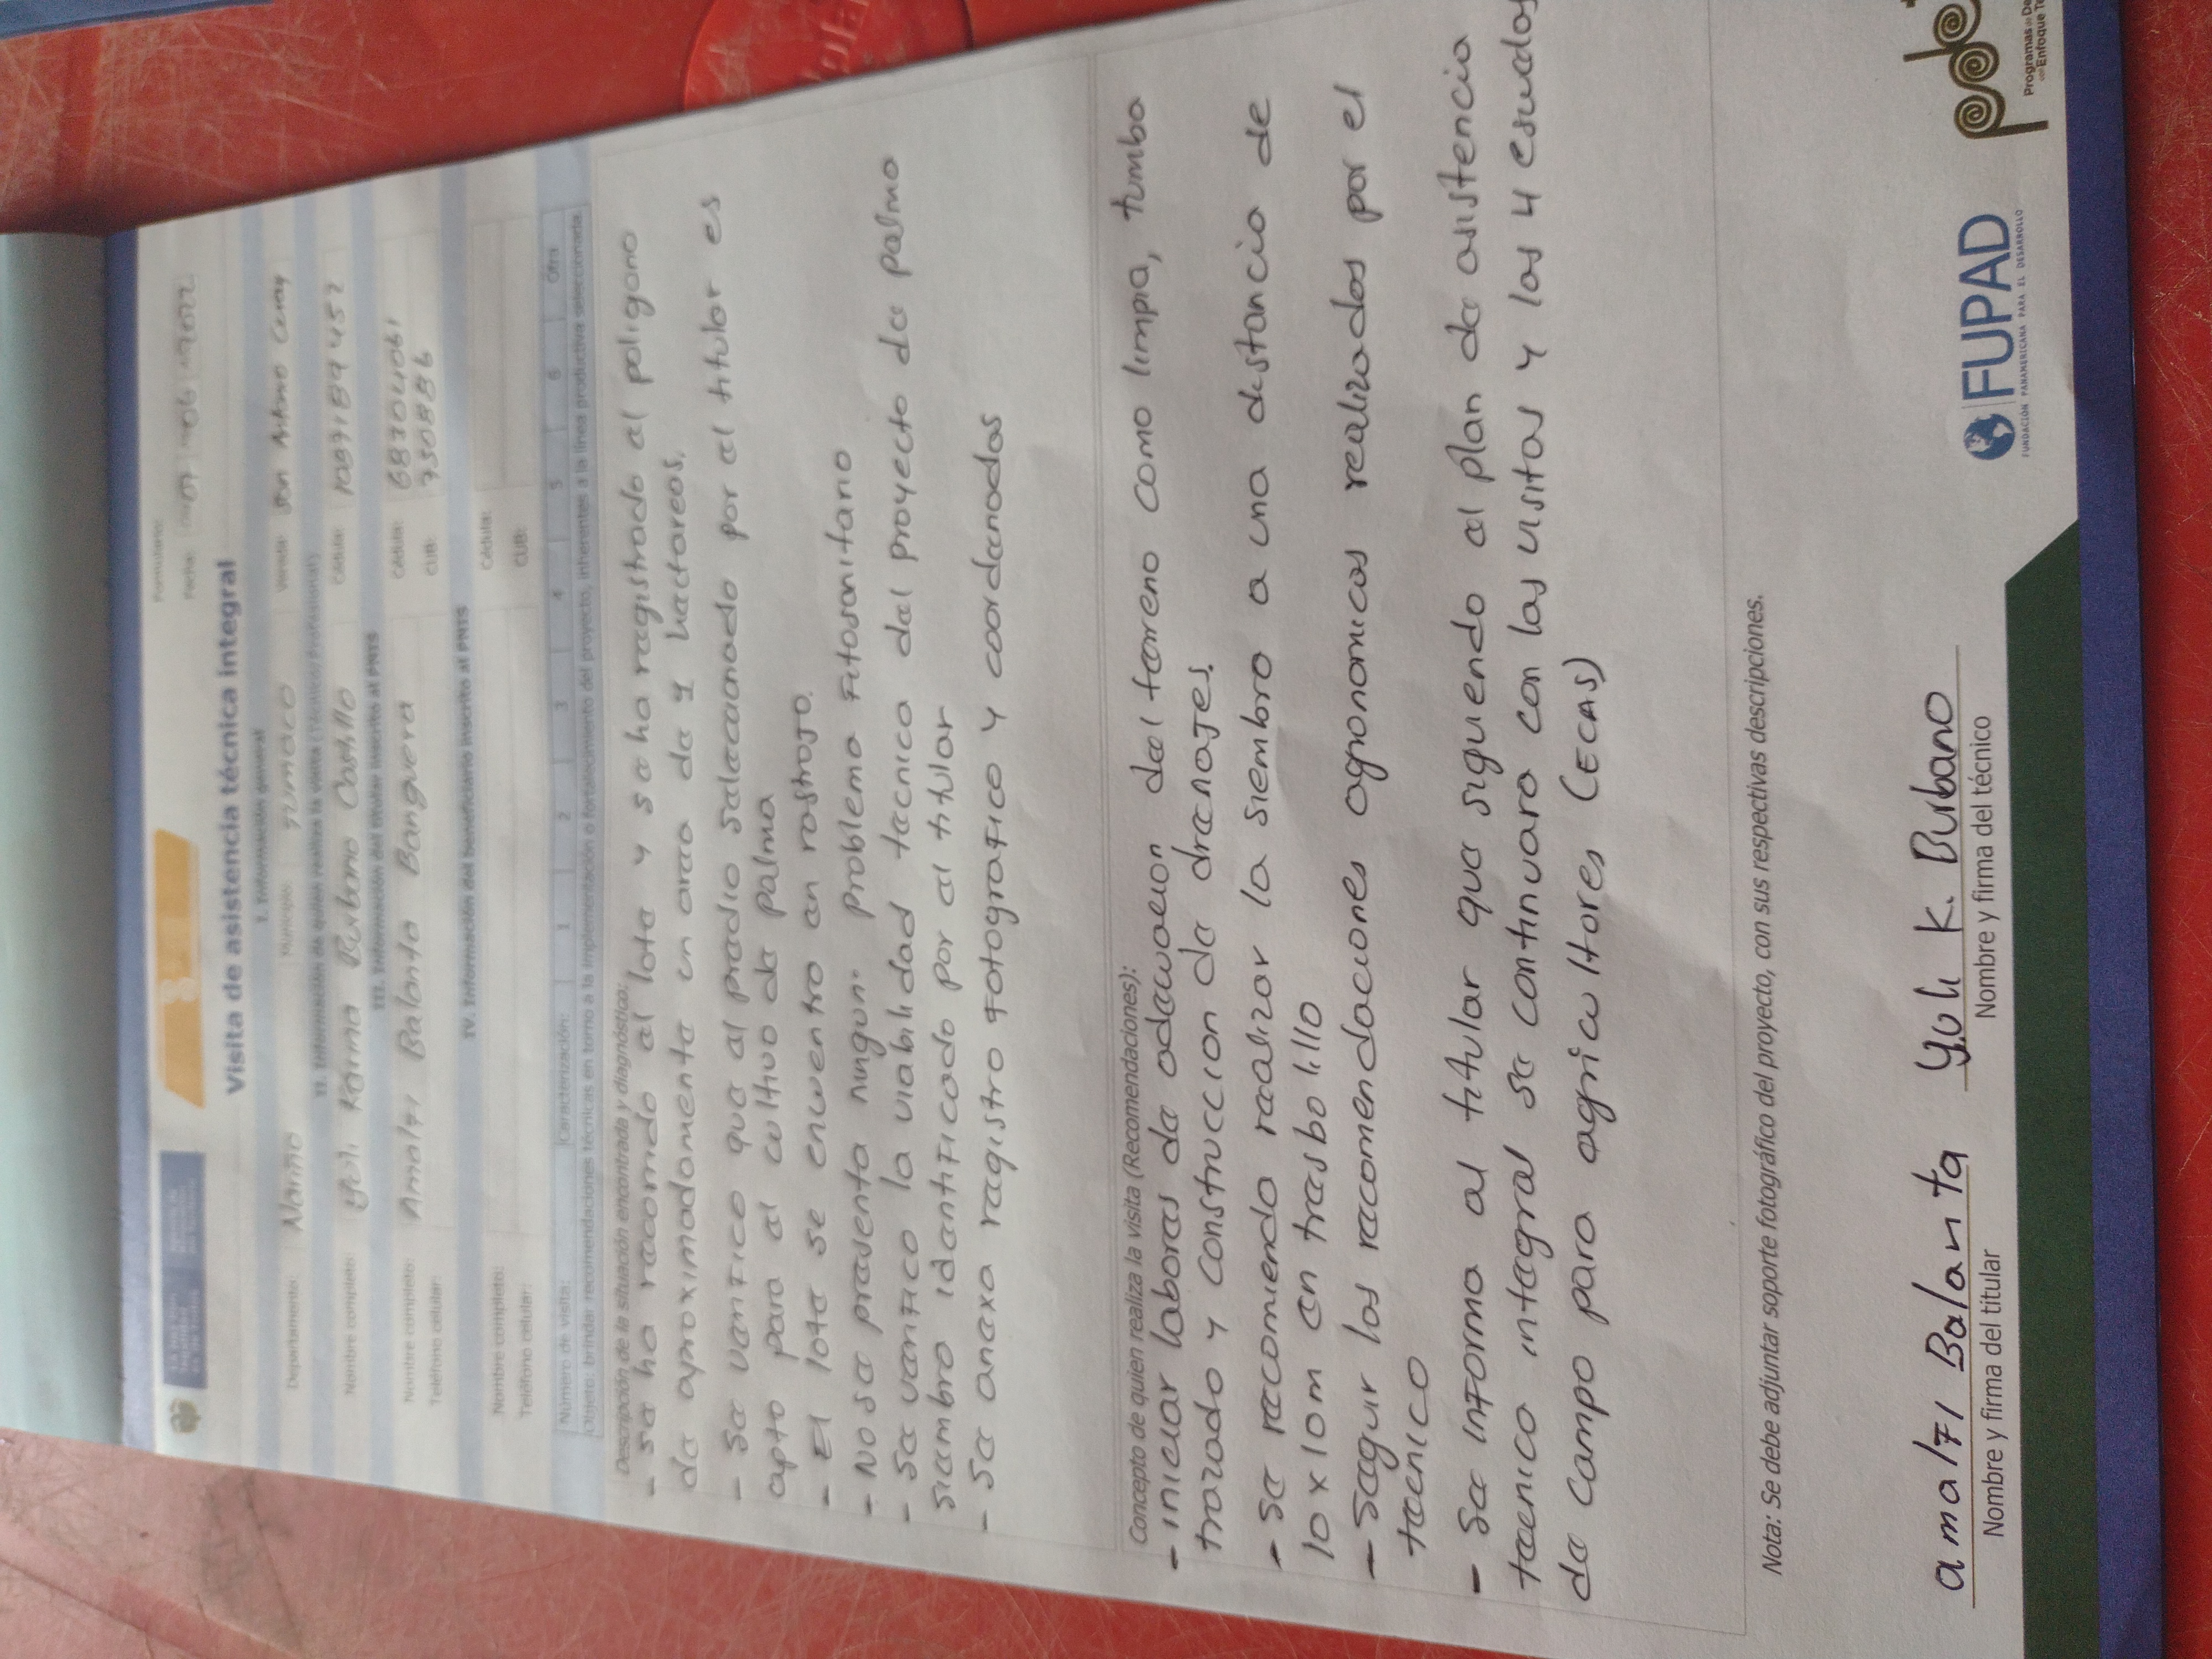 Formulario:
Fecha: 07 06 2022
Visita de asistencia técnica integral
I. Información general
Departamento: Nariño Municipio: Tumaco Vereda:
II. Información de quien realiza la visita (Técnico/Profesional)
Nombre completo: Yuli Karina Burbano Castillo Cédula: 1089189452
III. Información del titular inscrito al PNIS
Nombre completo: Amalfi Balanta Banguera Cédula: 68304061
Teléfono celular: CUB: 730886
IV. Información del beneficiario inscrito al PNIS
Nombre completo: Cédula:
Teléfono celular: CUB:
Número de visita: Caracterización: 1 2 3 4 5 6 Otra
Objeto: brindar recomendaciones técnicas en torno a la implementación o fortalecimiento del proyecto, inherentes a la línea productiva seleccionada.
Descripción de la situación encontrada y diagnóstico:
- se ha recorrido el lote y se ha registrado el poligono
de aproximadamente un area de 4 hectareas.
- Se verifico que el predio seleccionado por el titular es
apto para el cultivo de palma
- El lote se encuentra en rastrojo.
- No se presenta ningun problema fitosanitario
- Se verifico la viabilidad tecnica del proyecto de palma
siembra identificado por el titular
- Se anexa registro fotografico y coordenadas
Concepto de quien realiza la visita (Recomendaciones):
- iniciar labores de adecuacion del terreno como limpia, tumba
trazado y construccion de drenajes.
- Se recomienda realizar la siembra a una distancia de
10 x 10m en tresbolillo
- Seguir las recomendaciones agronomicas realizadas por el
tecnico
- Se informa al titular que siguiendo el plan de asistencia
tecnica integral se continuara con las visitas y las 4 escuelas
de campo para agricultores (ECAS)
Nota: Se debe adjuntar soporte fotográfico del proyecto, con sus respectivas descripciones.
amalfi Balanta Yuli K. Burbano
Nombre y firma del titular Nombre y firma del técnico
FUPAD
FUNDACIÓN PANAMERICANA PARA EL DESARROLLO
Programas de
con Enfoque